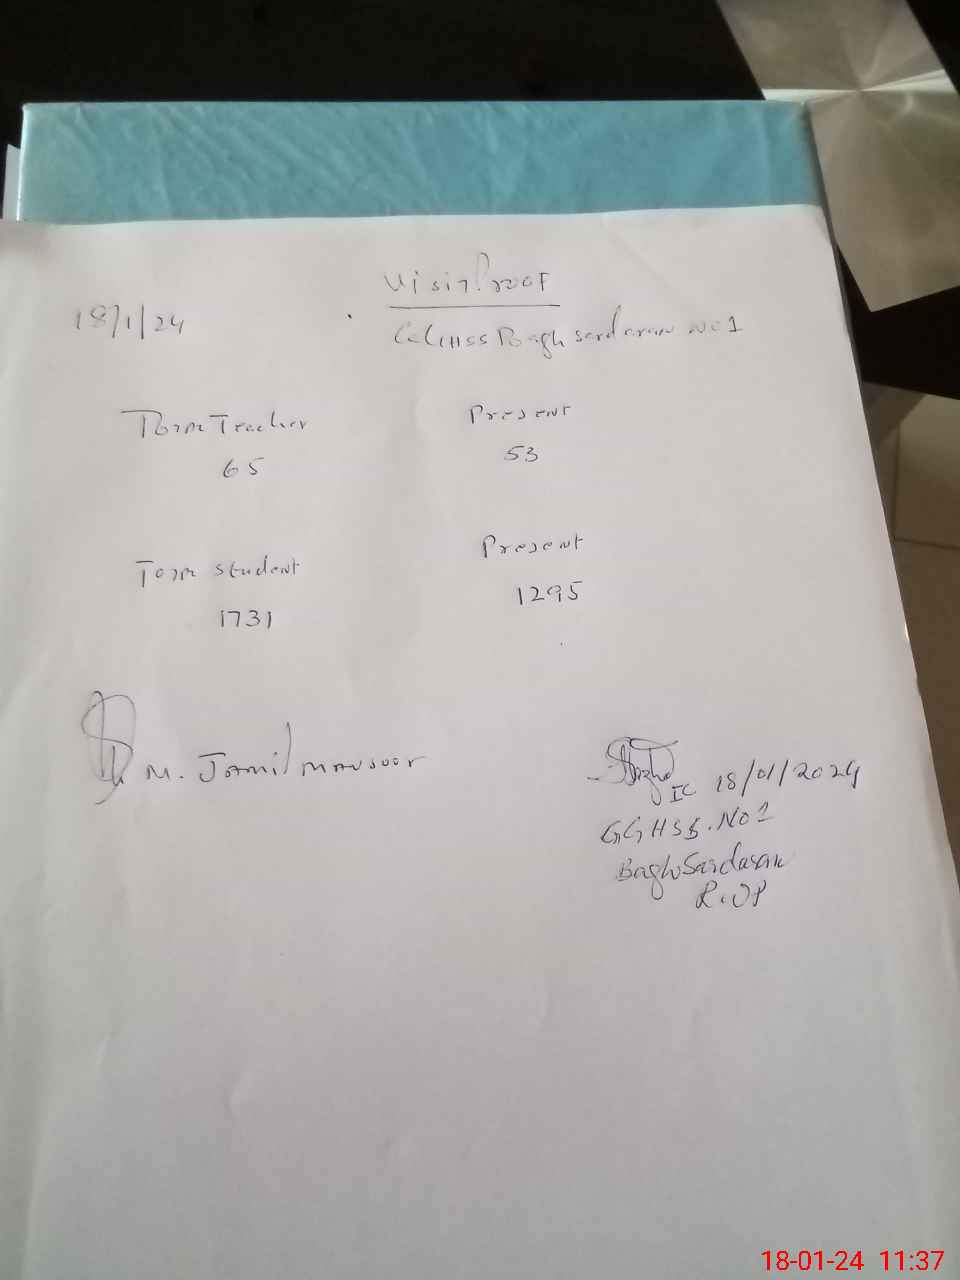 Visit Proof
18/1/24
GGHSS Bagh sardaran No 1
Teacher Present
65 53
student Present
1731 1295
M. Jamil mansoor
IC 18/01/2024
GGHSS. No 1
Bagh Sardaran
R.O.P
18-01-24 11:37